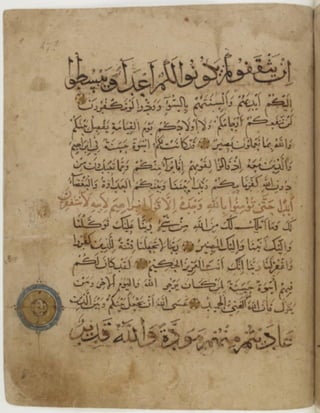 ان يثقفوكم يكونوا لكم اعداء ويبسطوا
اليكم ايديهم والسنتهم بالسوء وودوا لو تكفرون
لن تنفعكم ارحامكم ولا اولادكم يوم القيامة يفصل بينكم
والله بما تعملون بصير قد كانت لكم اسوة حسنة في ابرهيم
والذين معه اذ قالوا لقومهم انا برآء منكم ومما تعبدون من
دون الله كفرنا بكم وبدا بيننا وبينكم العداوة والبغضاء
ابدا حتى تؤمنوا بالله وحده الا قول ابرهيم لابيه لاستغفرن
لك وما املك لك من الله من شيء ربنا عليك توكلنا
واليك انبنا واليك المصير ربنا لا تجعلنا فتنة للذين كفروا
واغفر لنا ربنا انك انت العزيز الحكيم لقد كان لكم
فيهم اسوة حسنة لمن كان يرجوا الله واليوم الاخر ومن
يتول فان الله هو الغني الحميد عسى الله ان يجعل بينكم وبين الذين
عاديتم منهم مودة والله قدير